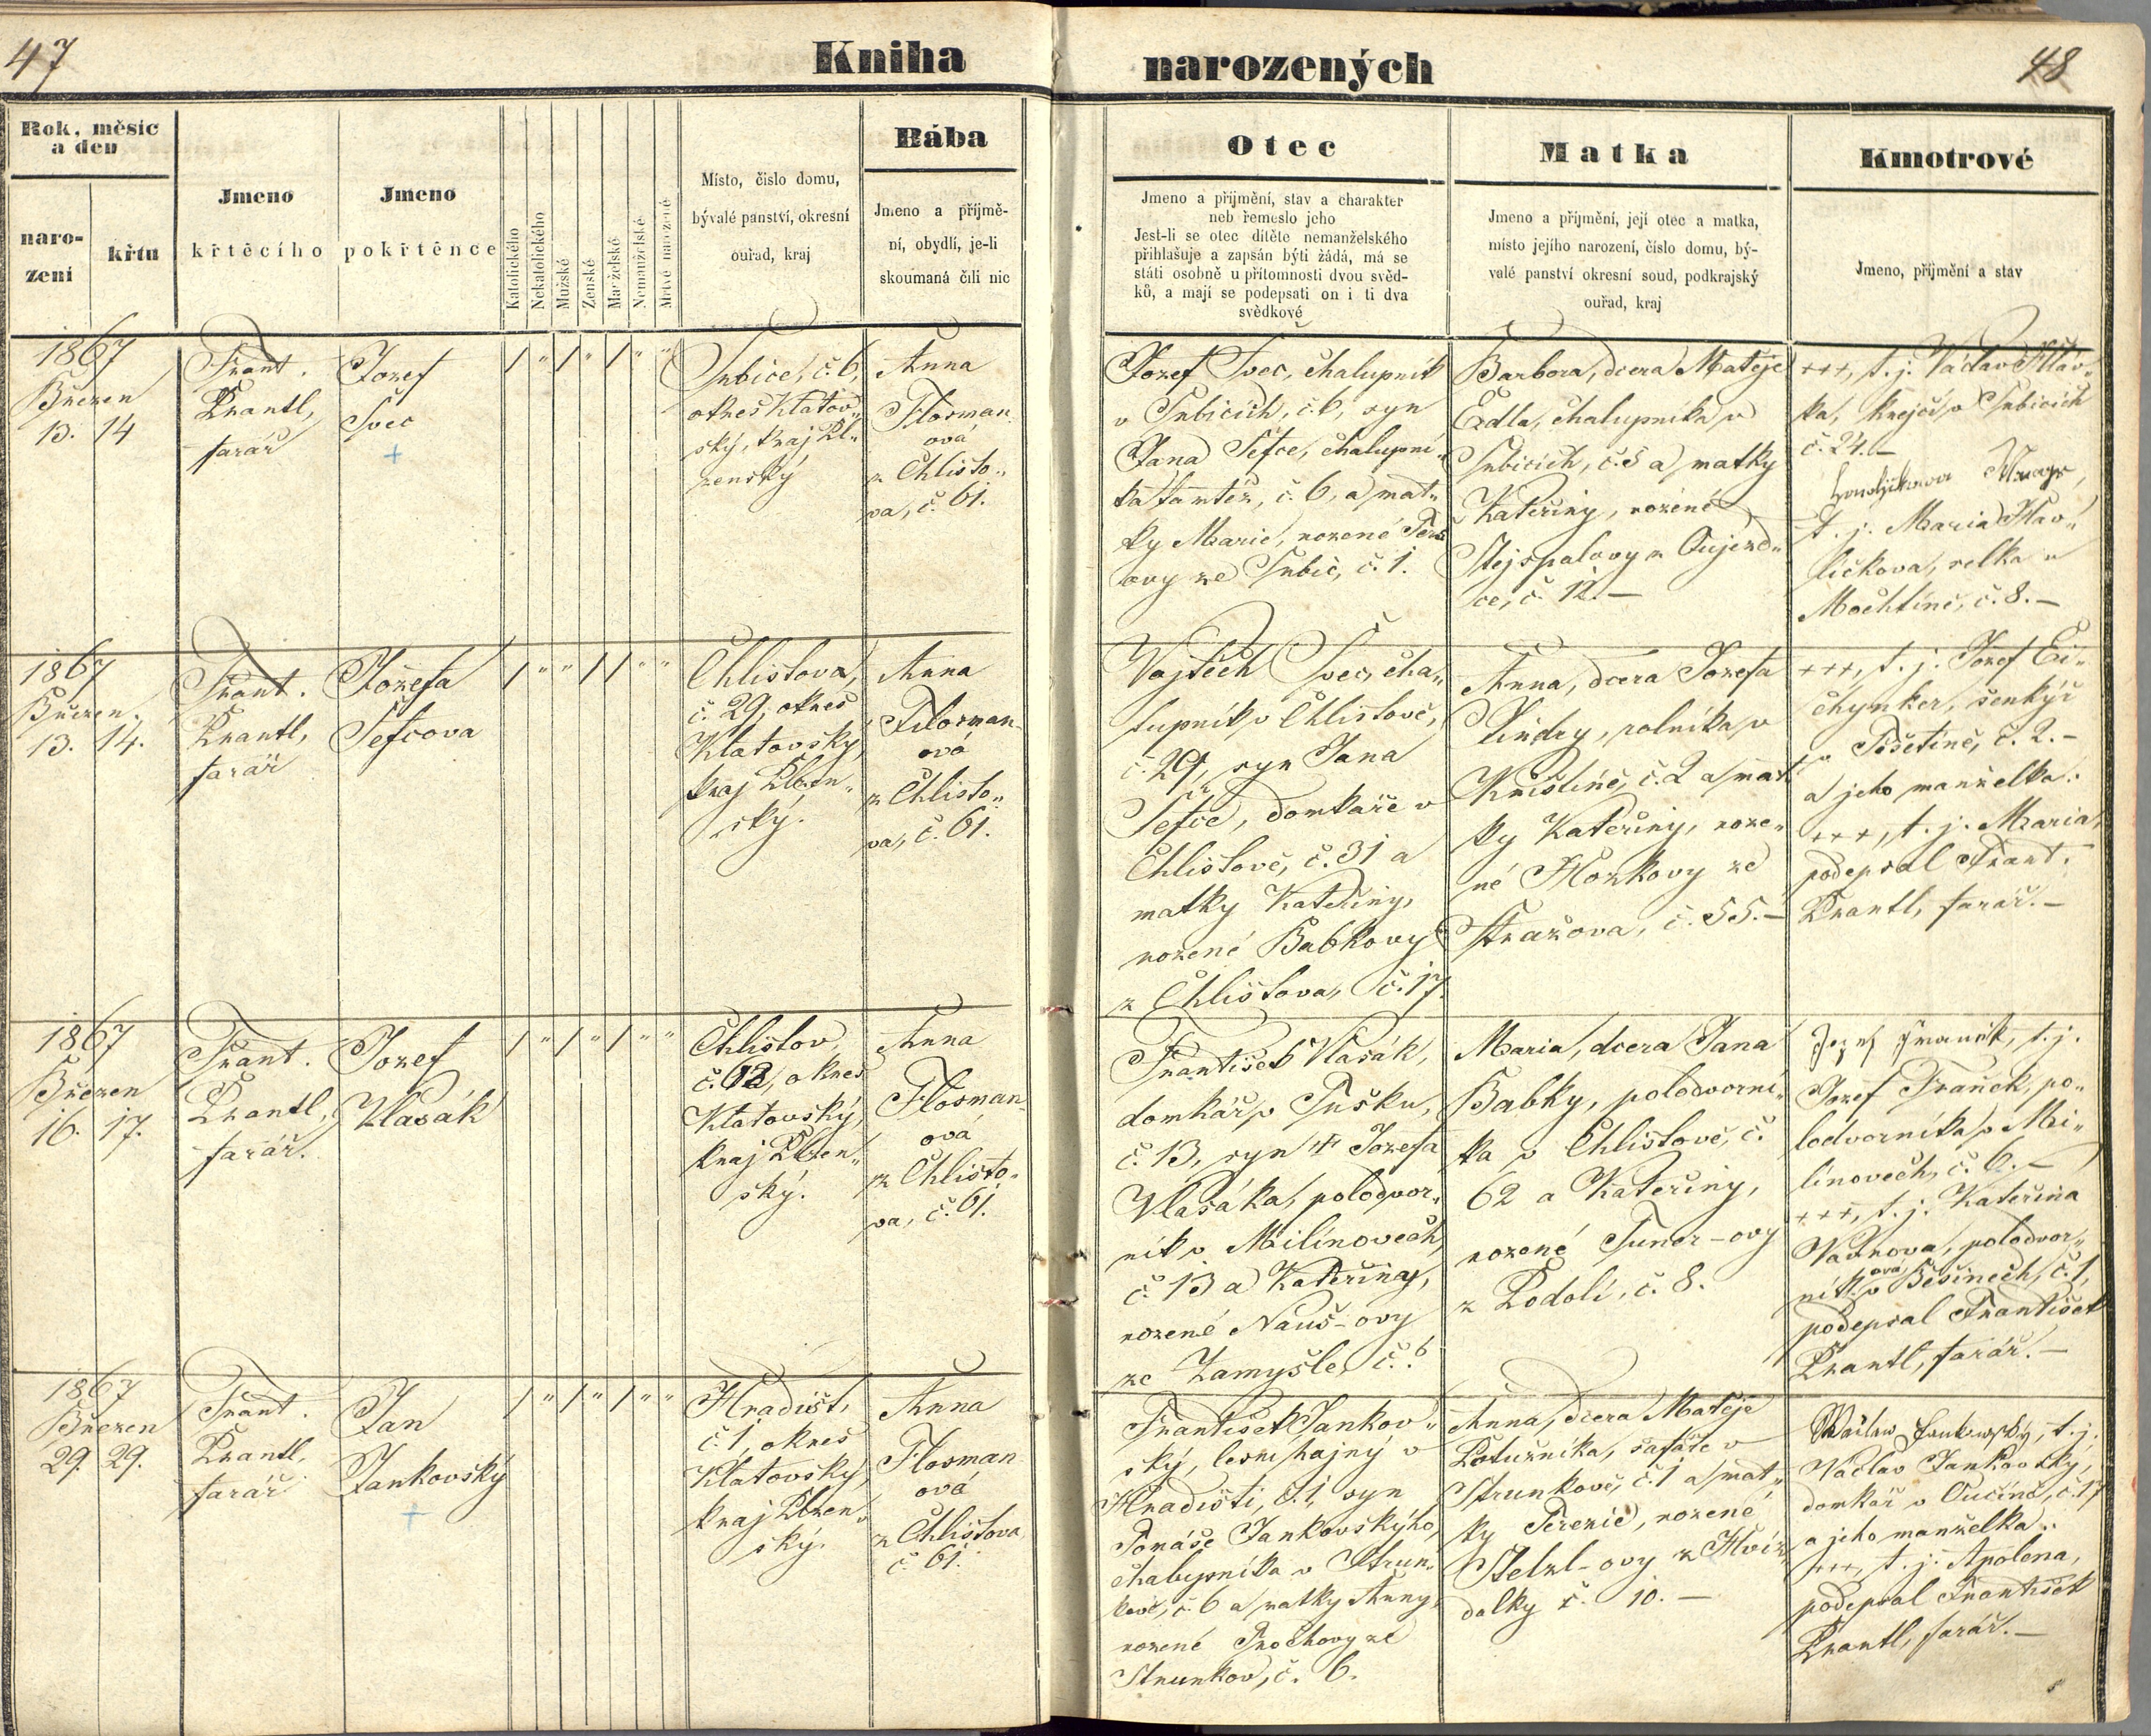 47
Kniha
narozených
48
Rok, měsíc
a den
naro-
zení
křtu
Jmeno
křtěcího
Jmeno
pokřtěnce
Katolického
Nekatolického
Mužské
Ženské
Manželské
Nemanželské
Mrtvě narozené
Místo, číslo domu,
bývalé panství, okresní
ouřad, kraj
Bába
Jmeno a příjmě-
ní, obydlí, je-li
skoumaná čili nic
Otec
Jmeno a příjmění, stav a charakter
neb řemeslo jeho
Jest-li se otec dítěte nemanželského
přihlašuje a zapsán býti žádá, má se
státi osobně u přítomnosti dvou svěd-
ků, a mají se podepsati on i ti dva
svědkové
Matka
Jmeno a příjmění, její otec a matka,
místo jejího narození, číslo domu, bý-
valé panství okresní soud, podkrajský
ouřad, kraj
Kmotrové
Jmeno, příjmění a stav
1867
Březen
13. 14
Frant.
Prantl,
farář
Jozef
Švec
Srbice, č. 6,
okres Klatov-
ský, kraj Pl-
zenský
Anna
Flosman-
ová
z Chlisto-
va, č. 61.
Jozef Švec, chalupník
v Srbicích, č. 6, syn
Jana Šefce, chalupní-
ka tamtéz, č. 6, a mat-
ky Marie, rozené
ovy ze Srbic, č. 1.
Barbora, dcera Matěje
Edla, chalupníka v
Srbicích, č. 5 a matky
Kateřiny, rozené
Stejspalovy z Oujezd-
ce, č. 12. –
+++, t. j. Václav Hláv-
ka, krejčí v Srbicích
č. 24. –
t. j. Maria Hav-
ličkova, selka v
Mochtíně, č. 8. –
1867
Březen.
13. 14.
Frant.
Prantl,
farář
Jozefa
Šefcova
Chlistova,
č. 29, okres
Klatovský,
kraj Plzen-
ský.
Anna
Flosman-
ová
z Chlisto-
va, č. 61.
Vojtěch Švec, cha-
lupník v Chlistově,
č. 29, syn Jana
Šefce, domkaře v
Chlistově, č. 31 a
matky Kateřiny,
rozené Babkovy
z Chlistova, č. 17.
Anna, dcera Jozefa
Jindry, rolníka v
Křištíně, č. 2 a mat-
ky Kateřiny, roze-
né Horkovy ze
Stražova, č. 55. –
+++, t. j. Jozef Ei-
chynker, šenkýř
v Těšetíně, č. 2. –
a jeho manželka:
+++, t. j. Maria,
podepsal Frant.
Prantl, farář. –
1867
Březen
16. 17.
Frant.
Prantl,
farář.
Jozef
Vlasák
Chlistov,
okres
Klatovský,
kraj Plzen-
ský.
Anna
Flosman-
ová
z Chlisto-
va, č. 61.
František Vlasák,
domkář v Tušku,
č. 13, syn † Jozefa
Vlasáka, polodvor-
ník v Milínovech,
č. 13 a Kateřiny,
rozené Nauš-ovy
ze Zamyšle, č. 6
Maria, dcera Jana
Babky, polodvorní-
ka v Chlistově, č.
62 a Kateřiny,
rozené Tuner-ovy
z Podolí, č. 8.
t. j.
Jozef Franěk, po-
lodvorníka v Mi-
línovech, č. 6. –
+++, t. j. Kateřina
polodvor-
ník. ová v Běšinech, č. 1,
podepsal František
Prantl, farář. –
1867
Březen
29. 29.
Frant.
Prantl,
farář
Jan
Jankovský
Hradišt,
č. 1, okres
Klatovský,
kraj Plzen-
ský.
Anna
Flosman-
ová
z Chlistova
č. 61.
František Jankov-
ský, lesní hajný v
Hradišti, č. 1, syn
Tomáše Jankovskýho,
chalupníka v Strun-
kově, č. 6 a matky Anny,
rozené Prochovy ze
Strunkov, č. 6.
Anna, dcera Matěje
Potužníka, šafáře v
Strunkově, č. 1 a mat-
ky Terezie, rozené
Stelzl-ovy z Hvíz-
dalky č. 10. –
Wáclaw Jankowský, t. j.
Václav Jankovský,
domkář v Oučíně, č. 17
a jeho manželka:
+++, t. j. Apolena,
podepsal František
Prantl, farář. –